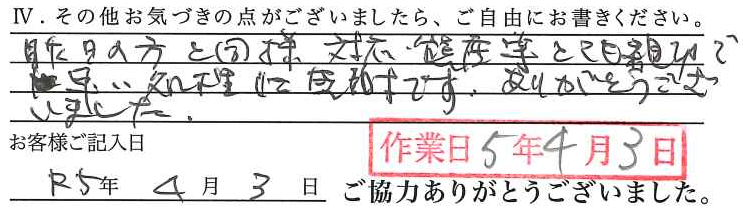 Ⅳ．その他お気づきの点がございましたら、ご自由にお書きください。
昨日の方と同様 対応・態度等とても親切で
早い処理に感謝です。ありがとうござ
いました。
お客様ご記入日
作業日 5年4月3日
R5年 4月3日 ご協力ありがとうございました。